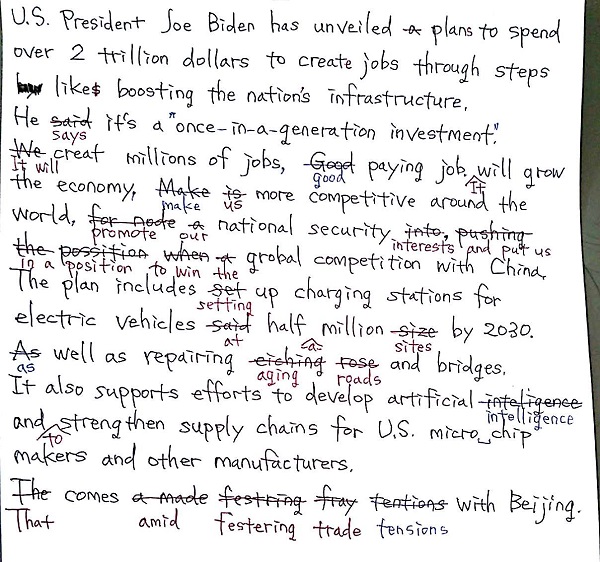 U.S. President Joe Biden has unveiled a plans to spend
over 2 trillion dollars to create jobs through steps
likes boosting the nation's infrastructure.
He said it's a "once-in-a-generation investment."
says
We creat millions of jobs, Good paying job will grow
It will good It
the economy, Make is more competitive around the
make us
world, for node a national security into, pushing
promote our interests and put us
the possition when a grobal competition with China.
in a position to win the
The plan includes set up charging stations for
setting
electric vehicles said half million size by 2030.
at a sites
As well as repairing eiching rose and bridges.
as aging roads
It also supports efforts to develop artificial inteligence
intelligence
and strengthen supply chains for U.S. micro chip
to
makers and other manufacturers.
The comes a made festring fray tentions with Beijing.
That amid festering trade tensions